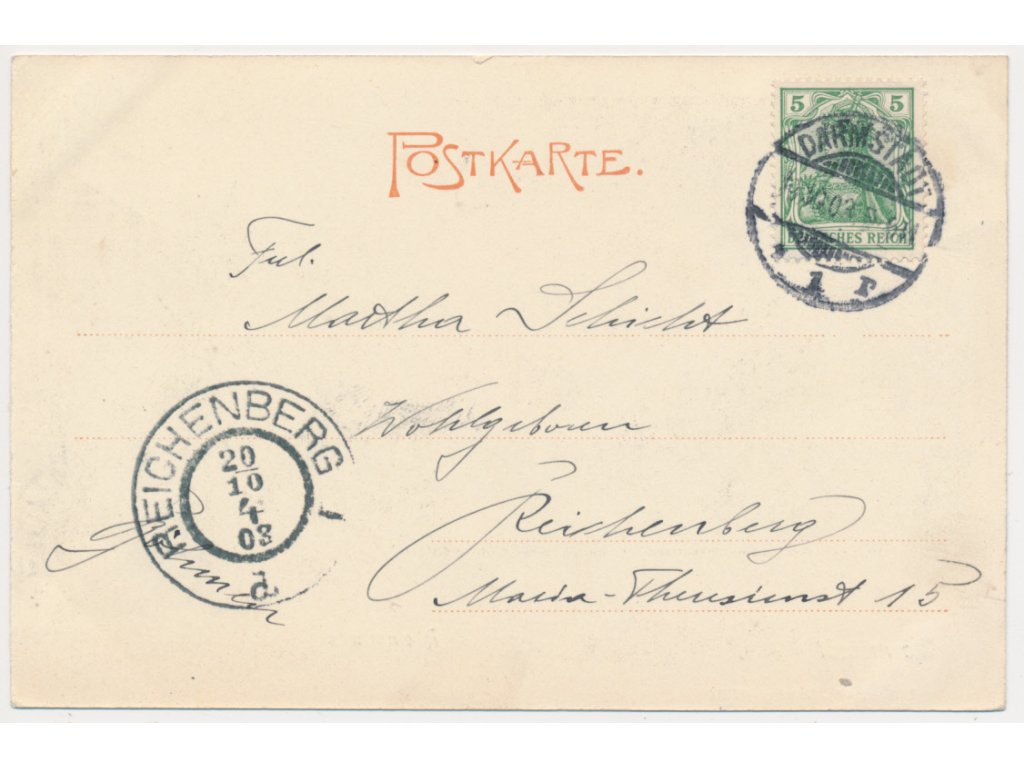 5 5
POSTKARTE.
DARMSTADT
DEUTSCHES REICH
1 P
Frl.
Martha Schicht
Wohlgeboren
REICHENBERG 1
20
10
4
03
d
Reichenberg
Maria-Theresienst 15